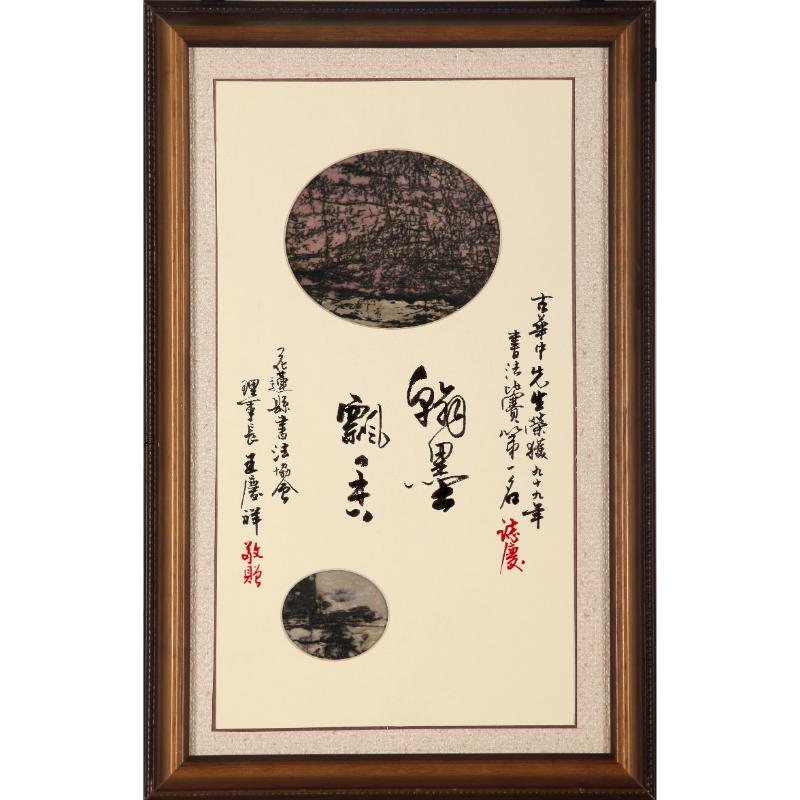 古華中先生榮獲九十九年
書法比賽第一名 誌慶
翰墨
飄香
花蓮縣書法協會
理事長 王慶祥 敬贈